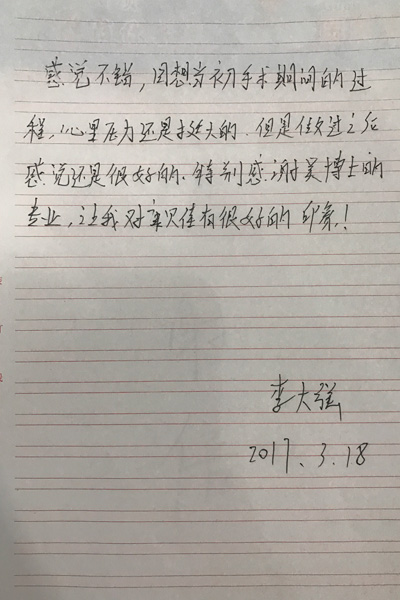 感觉不错，回想当初手术期间的过
程，心里压力还是挺大的．但是做过之后
感觉还是很好的．特别感谢吴博士的
专业，让我对 有很好的印象！
李大
2017．3．18